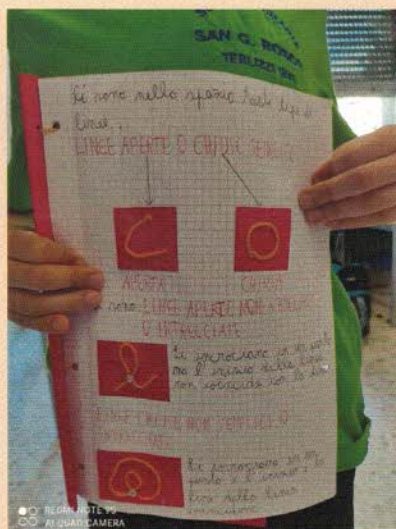 SAN G. BOSCO
TERLIZZI
Ci sono nello spazio tante tipi di
linee.
LINEE APERTE O CHIUSE SEMPLICI
APERTA
CHIUSA
Ci sono LINEE APERTE NON SEMPLICI
O INTRECCIATE
Si incrociano in un punto
ma l'inizio della linea
non coincide con la fine
LINEE CHIUSE NON SEMPLICI O
INTRECCIATE
Si incrociano in un
punto e l'inizio e la
fine della linea
coincidono
REDMI NOTE 9S
AI QUAD CAMERA